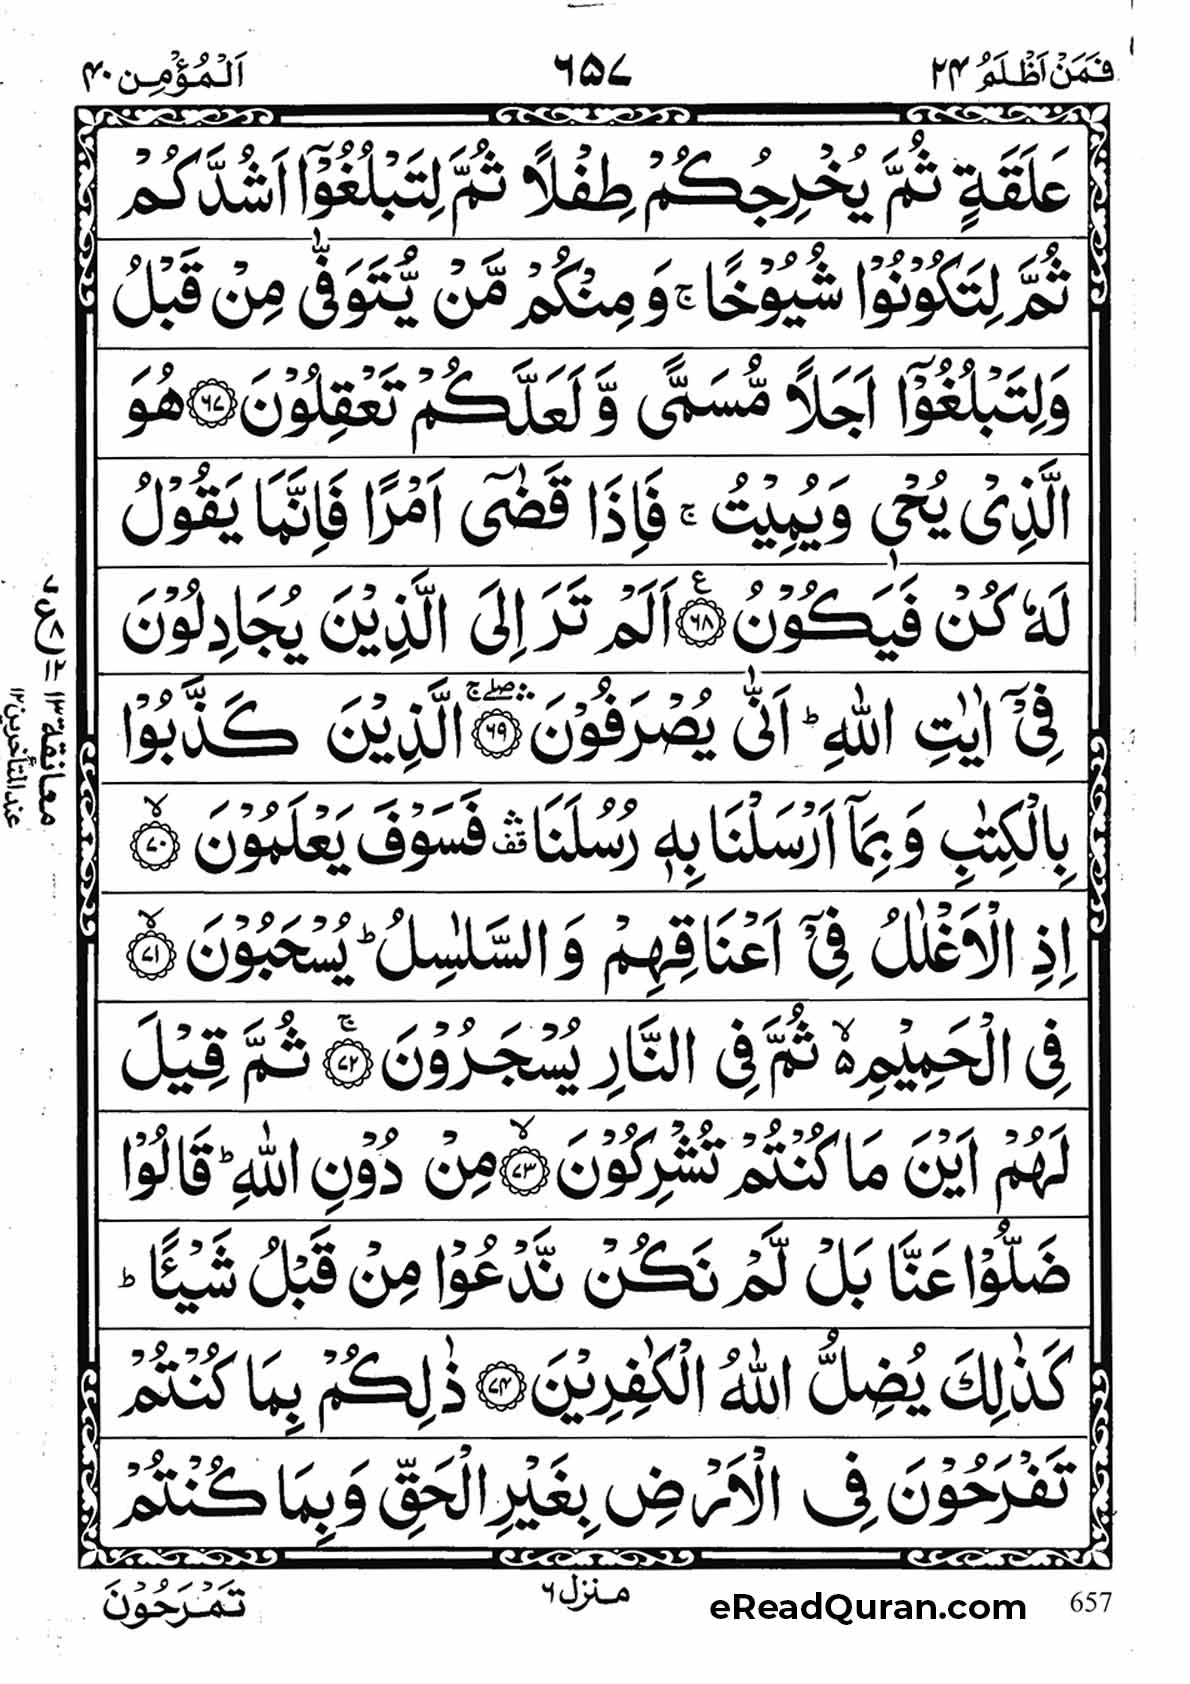 فَمَنْ اَظْلَمُ ۲۴ ۶۵۷ اَلْمُؤْمِن ۴۰
عَلَقَةٍ ثُمَّ يُخْرِجُكُمْ طِفْلًا ثُمَّ لِتَبْلُغُوْٓا اَشُدَّكُمْ
ثُمَّ لِتَكُوْنُوْا شُيُوْخًا ۚ وَ مِنْكُمْ مَّنْ يُّتَوَفّٰى مِنْ قَبْلُ
وَلِتَبْلُغُوْٓا اَجَلًا مُّسَمًّى وَّ لَعَلَّكُمْ تَعْقِلُوْنَ ﴿۶۷﴾ هُوَ
الَّذِىْ يُحْىٖ وَيُمِيْتُ ۚ فَاِذَا قَضٰٓى اَمْرًا فَاِنَّمَا يَقُوْلُ
لَهٗ كُنْ فَيَكُوْنُ ﴿۶۸﴾ ع اَلَمْ تَرَ اِلَى الَّذِيْنَ يُجَادِلُوْنَ
فِىْٓ اٰيٰتِ اللّٰهِ ؕ اَنّٰى يُصْرَفُوْنَ ﴿۶۹﴾ ۛۖۚ الَّذِيْنَ كَذَّبُوْا
بِالْكِتٰبِ وَ بِمَآ اَرْسَلْنَا بِهٖ رُسُلَنَا ۛ قف فَسَوْفَ يَعْلَمُوْنَ ﴿۷۰﴾ ۙ
اِذِ الْاَغْلٰلُ فِىْٓ اَعْنَاقِهِمْ وَ السَّلٰسِلُ ؕ يُسْحَبُوْنَ ﴿۷۱﴾ ۙ
فِى الْحَمِيْمِ ۙ۬ ثُمَّ فِى النَّارِ يُسْجَرُوْنَ ﴿۷۲﴾ ۚ ثُمَّ قِيْلَ
لَهُمْ اَيْنَ مَا كُنْتُمْ تُشْرِكُوْنَ ﴿۷۳﴾ ۙ مِنْ دُوْنِ اللّٰهِ ؕ قَالُوْا
ضَلُّوْا عَنَّا بَلْ لَّمْ نَكُنْ نَّدْعُوْا مِنْ قَبْلُ شَيْـًٔا ؕ
كَذٰلِكَ يُضِلُّ اللّٰهُ الْكٰفِرِيْنَ ﴿۷۴﴾ ذٰلِكُمْ بِمَا كُنْتُمْ
تَفْرَحُوْنَ فِى الْاَرْضِ بِغَيْرِ الْحَقِّ وَ بِمَا كُنْتُمْ
تَمْرَحُوْنَ
منزل ۶
eReadQuran.com
657
معانقة ۱۳
عند المتأخرين ۱۲